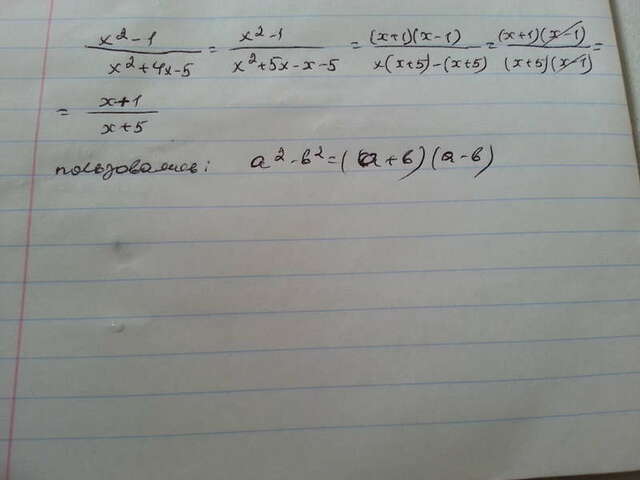 x²-1/x²+4x-5 = x²-1/x²+5x-x-5 = (x+1)(x-1)/x(x+5)-(x+5) = (x+1)(x-1)/(x+5)(x-1) =
= x+1/x+5
пользовались: a²-в²=(a+в)(a-в)